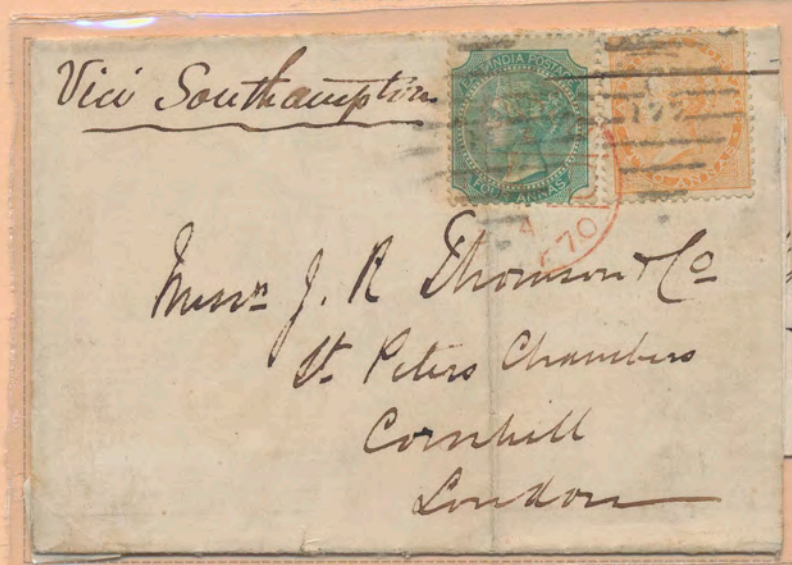 Via Southampton
INDIA POSTAGE
FOUR ANNAS
TWO ANNAS
C
177
4
70
Messrs J. R Thomson & Co
St. Peters Chambers
Cornhill
London